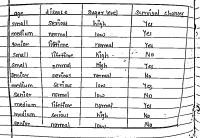 age disease Sugar level Survival chances
small serious high Yes
medium normal low Yes
senior lifetime normal Yes
small lifetime high No
small normal high Yes
senior serious normal No
medium serious low Yes
senior normal low No
medium lifetime normal Yes
medium serious high No
senior normal low No